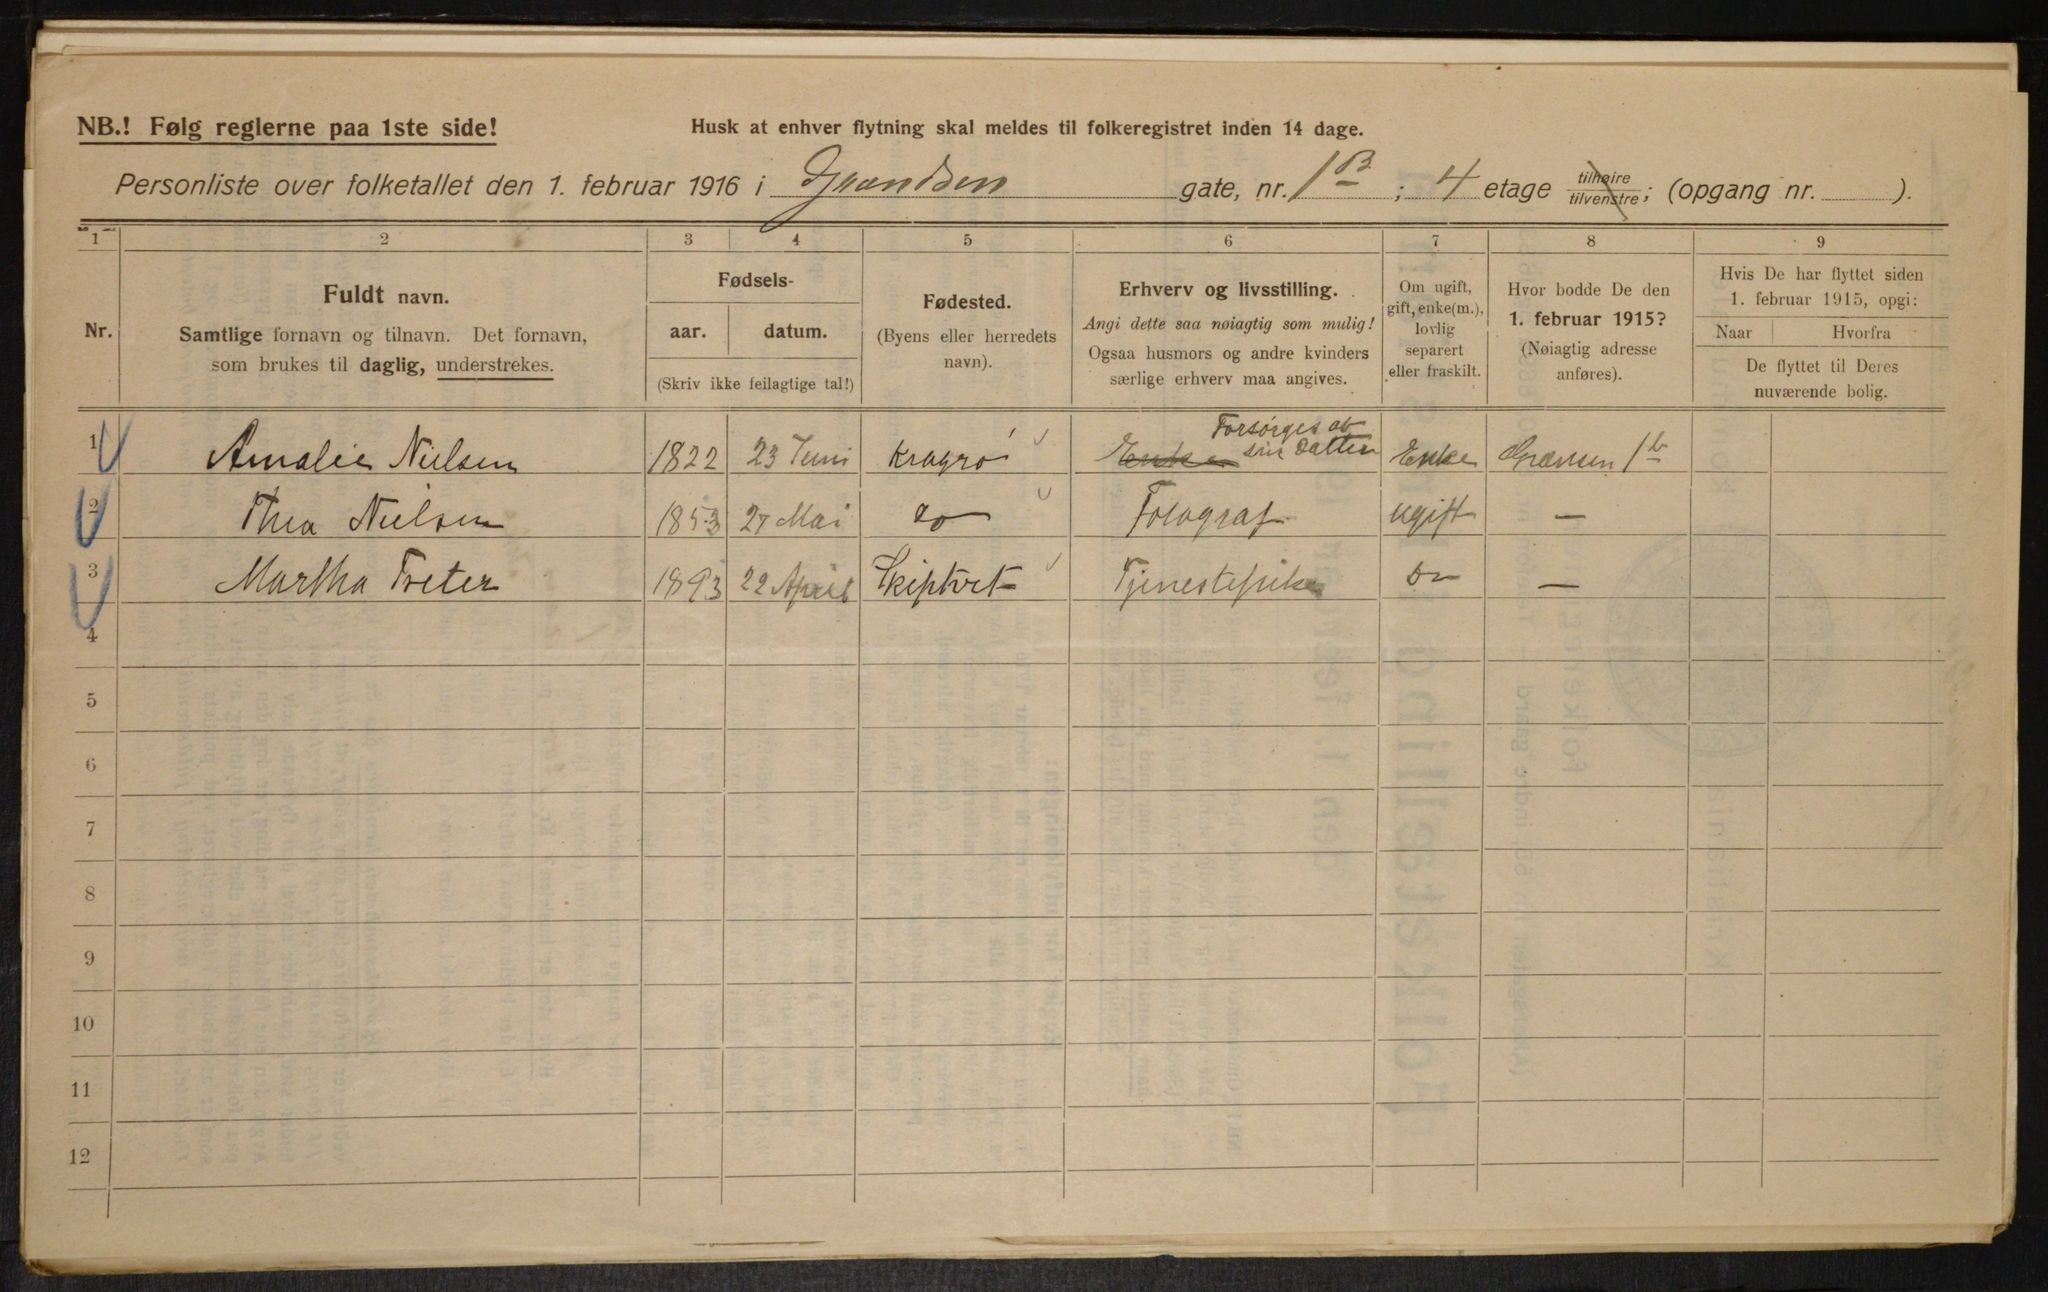 NB.! Følg reglerne paa 1ste side!
Husk at enhver flytning skal meldes til folkeregistret inden 14 dage.
Personliste over folketallet den 1. februar 1916 i Grændsen gate, nr. 1B; 4 etage tilhøire tilvenstre; (opgang nr. ).
1 2 3 4 5 6 7 8 9
Nr.
Fuldt navn.
Samtlige fornavn og tilnavn. Det fornavn,
som brukes til daglig, understrekes.
Fødsels-
aar. datum.
(Skriv ikke feilagtige tal!)
Fødested.
(Byens eller herredets
navn).
Erhverv og livsstilling.
Angi dette saa nøiagtig som mulig!
Ogsaa husmors og andre kvinders
særlige erhverv maa angives.
Om ugift,
gift, enke(m.),
lovlig
separert
eller fraskilt.
Hvor bodde De den
1. februar 1915?
(Nøiagtig adresse
anføres).
Hvis De har flyttet siden
1. februar 1915, opgi:
Naar Hvorfra
De flyttet til Deres
nuværende bolig.
1 Amalie Nielsen 1822 23 Juni Kragrø Enke Forsørges af sin Datter Enke Grændsen 1b
2 Thea Nielsen 1853 27 Mai do Fotograf ugift —
3 Martha Treter 1893 22 April Skiptvet Tjenestepike do —
4
5
6
7
8
9
10
11
12